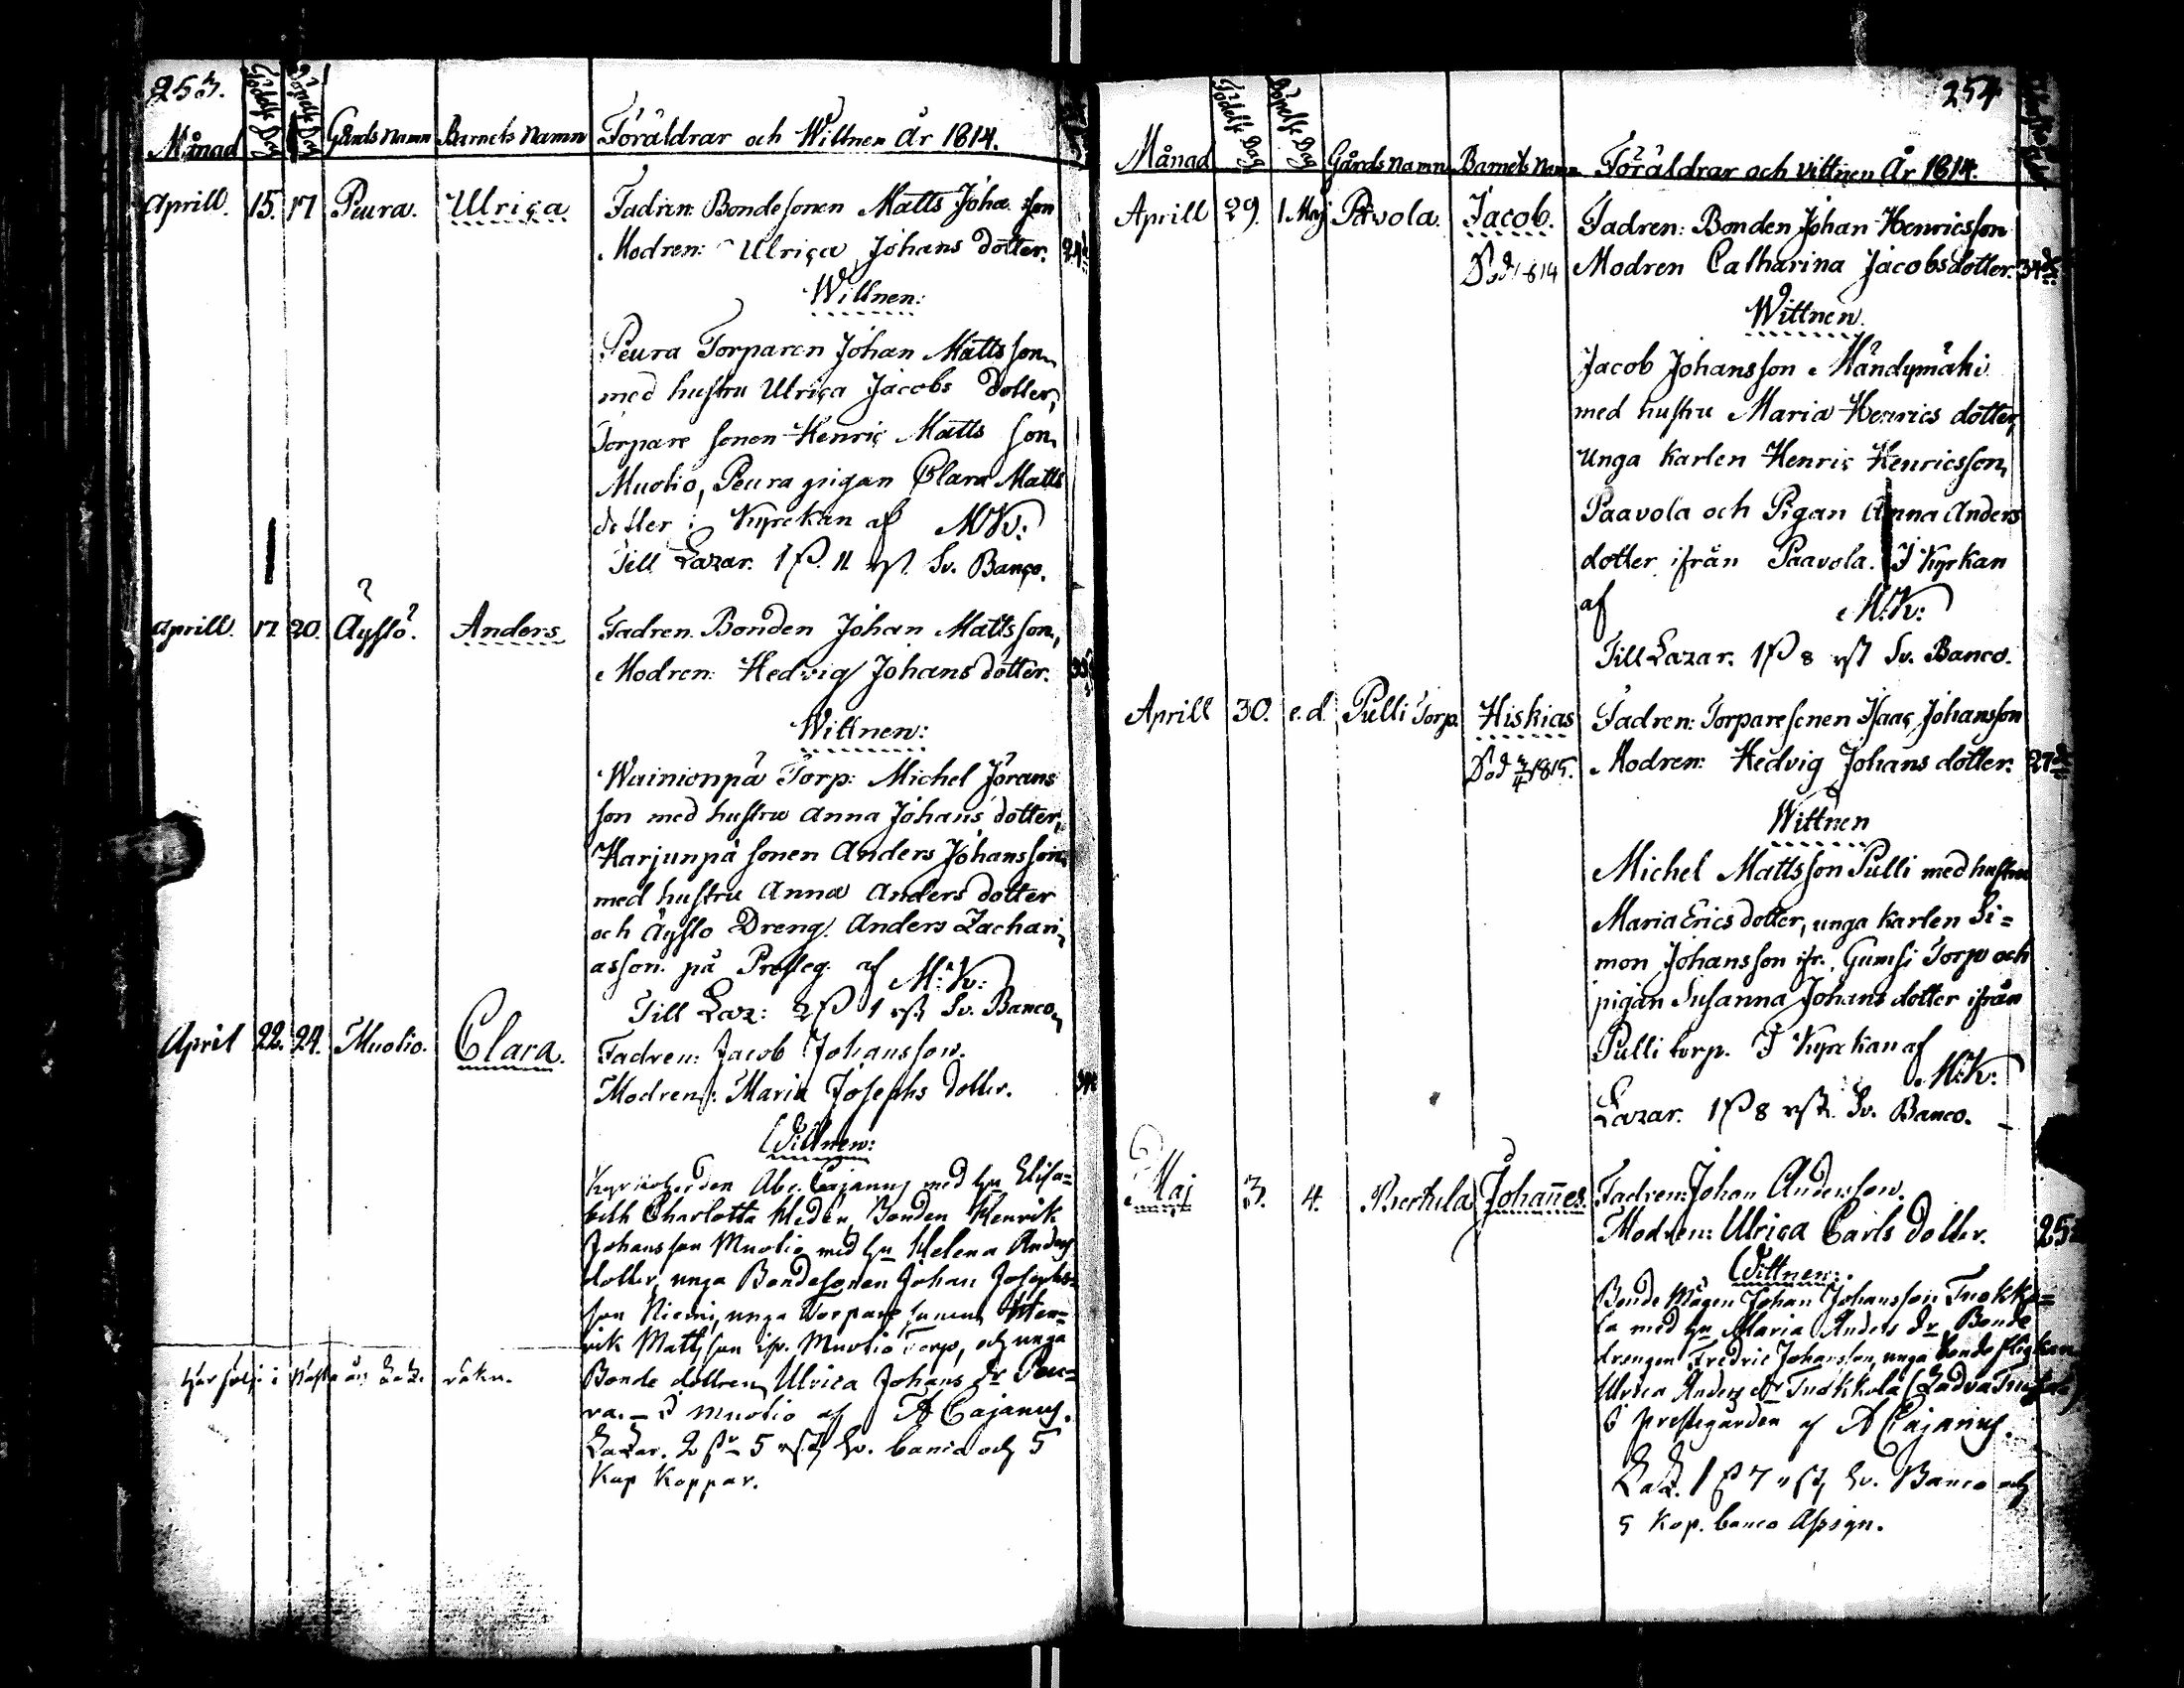 253.
Månad Födelse Dag Döpelse Dag Gårds Namn Barnets Namn Föräldrar och Wittnen År 1814.
Aprill. 15. 17 Peura. Ulrica. Fadren: Bondesonen Matts Joha sson
Modren: Ulrica Johans dotter.
Wittnen:
Peura Torparen Johan Matts son,
med hustru Ulrica Jacobs dotter,
Torpare sonen Henric Matts son
Muotio, Peura pigan Clara Matts
dotter i Kyrckan af M.K:
Till Lazar. 1 ß. 11 rst. Sv. Banco.
Aprill. 17. 20. Äyslö. Anders Fadren. Bonden Johan Matts son,
Modren: Hedvig Johans dotter.
Wittnen:
Wainionpä Torp: Michel Jörans
son med hustru Anna Johans dotter,
Harjunpä sonen Anders Johansson,
med hustru Anna Anders dotter
och Äyslö Dreng. Anders Zachari
asson. på Presteg. af M:K:
Till Laz: 2 ß 1 rst. Sv. Banco
April 22. 24. Muotio. Clara. Fadren: Jacob Johansson.
Modren: Maria Josephs dotter.
Wittnen:
Kyrkoherden Abr. Cajanus med hu Elisa=
beth Charlotta Heden, Bonden Henrik
Johansson Muotio med hu Helena Anders
dotter, unga Bondesonen Johan Josephs=
son Niemi, unga Torpare sonen Hen=
rik Mattsson ifr. Muotio Torp, och unga
Bonde dottren Ulrica Johans dr Peu=
ra. – I Muotio af A Cajanus.
Lazar. 2 ß 5 rst, Sv. banco och 5
Kop Koppar.
254
Månad Födelse Dag Döpelse Dag Gårds Namn Barnets Namn Föräldrar och Vittnen År 1814.
Aprill 29. 1. Maj Pavola. Jacob. Fadren: Bonden Johan Henricsson
Död 1814 Modren Catharina Jacobsdotter.
Wittnen.
Jacob Johansson Mändymäki
med hustru Maria Henrics dotter,
unga Karlen Henric Henricsson,
Paavola och Pigan Anna Anders
dotter ifrån Paavola. I Kyrkan
af M:K:
Till Lazar. 1 ß 8 rst Sv. Banco.
Aprill 30. e.d. Pulli Torp. Hiskias Fadren: Torparesonen Isaac Johansson
Död 1815. Modren: Hedvig Johans dotter. 27
Wittnen
Michel Mattsson Pulli med hustru
Maria Erics dotter, unga Karlen Si=
mon Johansson ifr. Gumsi Torp och
pigan Susanna Johans dotter ifrån
Pulli torp. I Kyrckan af
M:K:
Lazar. 1 ß 8 rst. Sv. Banco.
Maj 3. 4. Perhula Johannes. Fadren: Johan Andersson.
Modren: Ulrica Carls dotter. 25
Wittnen:
Bonde Mågen Johan Johansson Tuokko=
la med hu Maria Anders dr, Bonde
drengen Fredric Johansson, unga bonde flickan
Ulrica Anders dr Tuokkola
I prestegården af A Cajanus.
Laz. 1 ß 7 rst, Sv. Banco och
5 Kop. banco Assign.